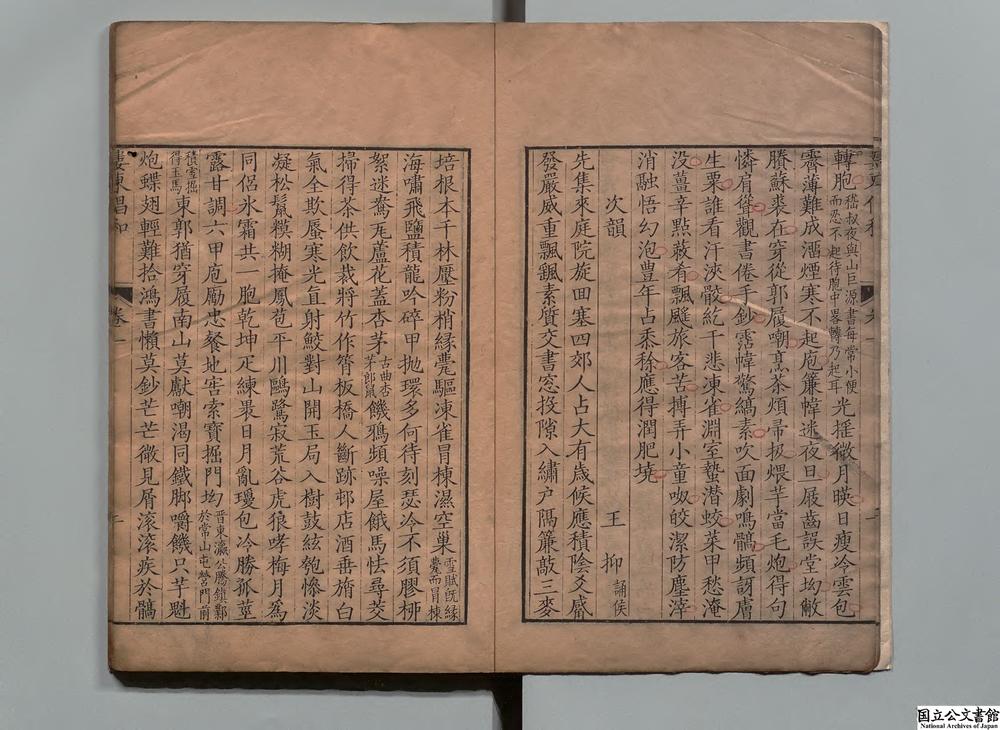 轉胞嵇叔夜與山巨源書每常小便而忍不起待胞中畧轉乃起耳光搖微月暎日瘦冷雲包
霽薄難成濕煙寒不起庖簾幃迷夜旦屐齒誤堂坳敝
賸蘇裘在穿從郭履嘲烹茶煩帚扱煨芋當毛炮得句
憐肩聳觀書倦手鈔霑幃驚縞素吹面劇鳴髇頻訝膚
生粟誰看汗浹骰紇干悲凍雀淵室蟄潛蛟菜甲愁淹
没薑辛點蔌肴飄颻旅客苦搏弄小童呶皎潔防塵滓
消融悟幻泡豊年占黍稌應得潤肥墝
次韻
王抑誦侯
先集來庭院旋回塞四郊人占大有歳候應積陰爻盛
發嚴威重飄飄素質交書窓投隙入繡户隔簾敲三麥
培根本千林壓粉梢縁甍驅凍雀冒棟濕空巢雪賦旣縁甍而冒棟
海嘯飛鹽積龍吟碎甲抛環多何待刻瑟冷不須膠栁
絮迷鴦瓦蘆花蓋杏茅古曲杏茅郎鼠饑鴉頻噪屋餓馬怯尋茭
掃得茶供飲裁將竹作筲板橋人斷跡邨店酒垂旓白
氣全欺蜃寒光直射鮫對山開玉局入樹鼓絃匏慘淡
凝松鬣糢糊掩鳳苞平川鷗鷺寂荒谷虎狼哮梅月為
同侶氷霜共一胞乾坤疋練㬥日月亂瓊包冷勝孤莖
露甘調六甲庖勵忠餐地害索寳掘門坳晋東瀛公騰鎮鄴於常山屯營門前
積雪掘得玉馬東郭猶穿履南山莫獻嘲渴同鐵脚嚼饑只芋魁
炮蝶翅輕難拾鴻書懶莫鈔芒芒微見屑滚滚疾於髇
婁東倡和
卷一
二
国立公文書館
National Archives of Japan